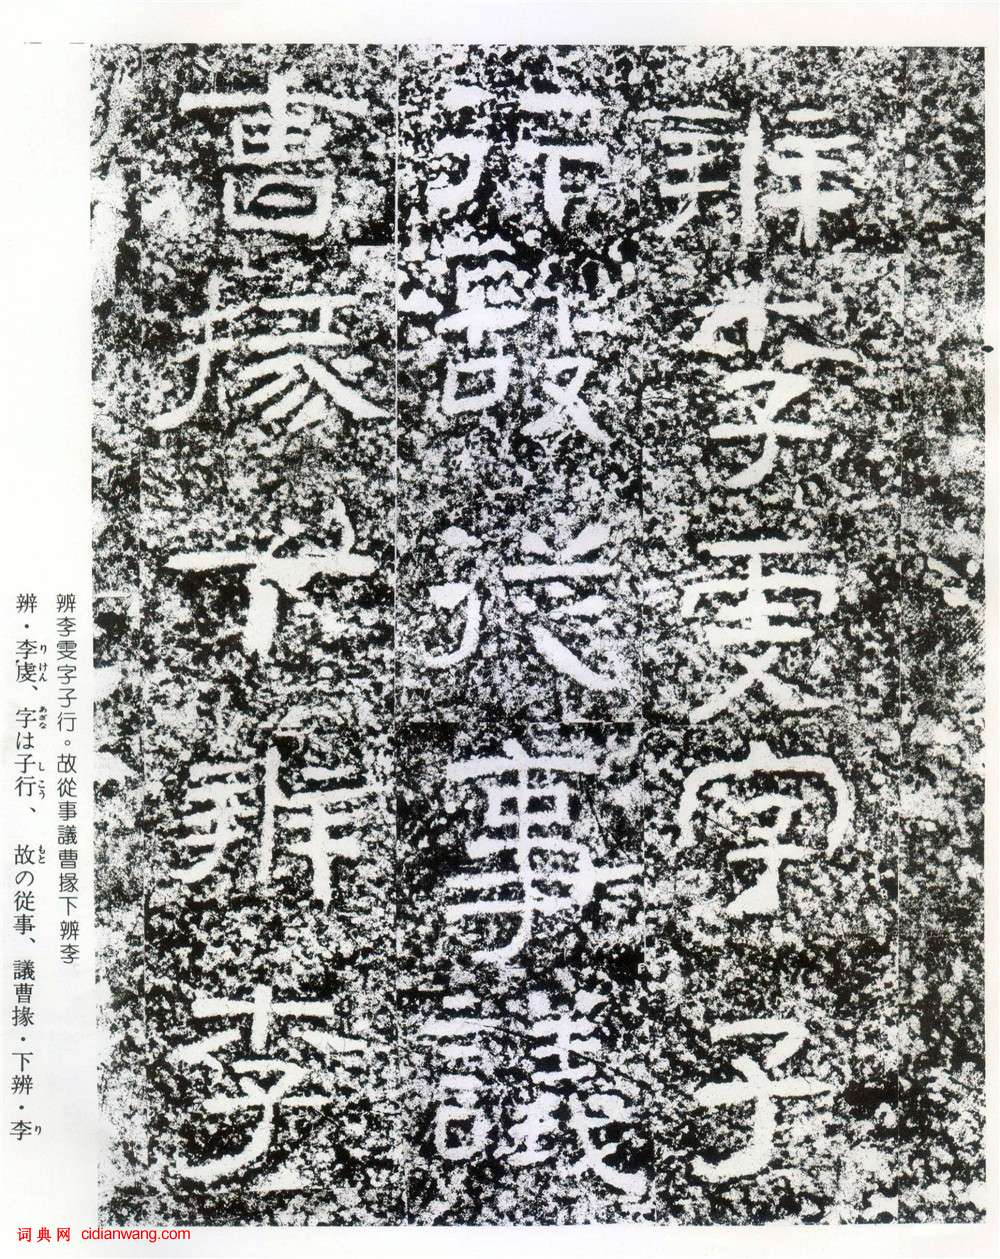 辨李雯字子
行故從事議
曹掾下辨李
辨李雯字子行。故從事議曹掾下辨李
りけん あざな しこう もと り
辨・李虔、字は子行、故の従事、議曹掾・下辨・李
词典网 cidianwang.com